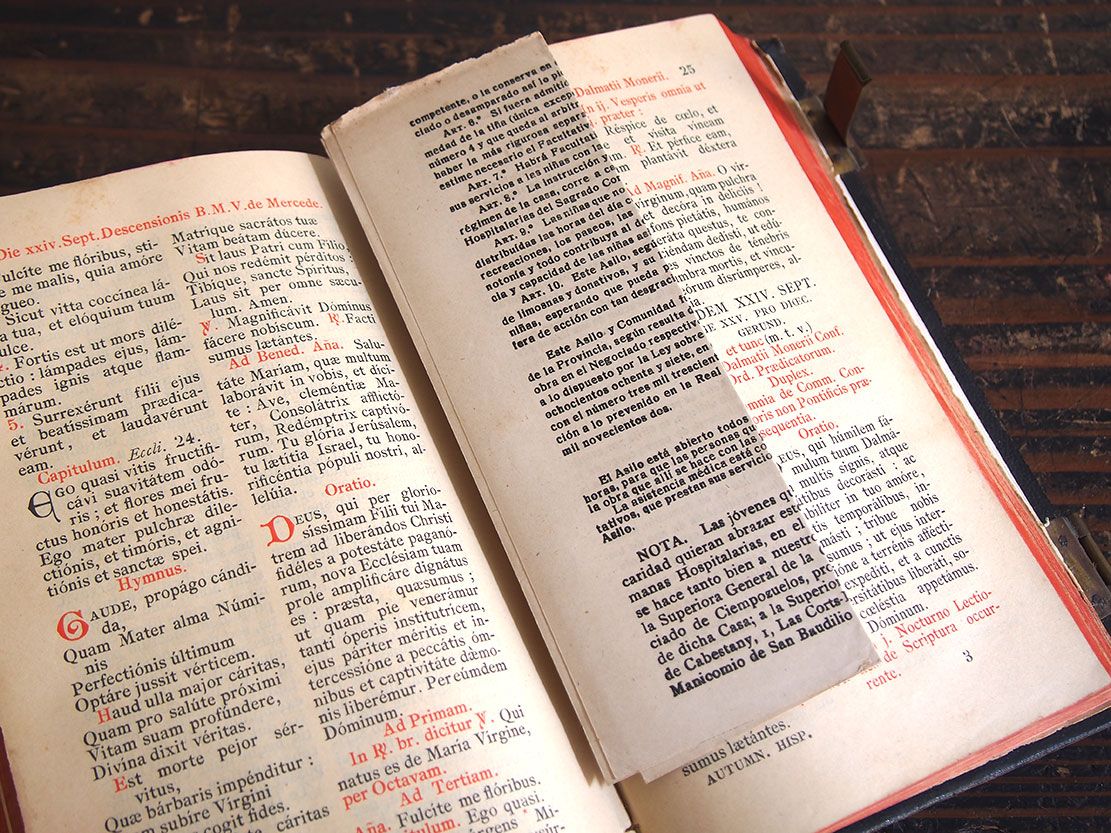 Die xxiv. Sept. Descensionis B.M.V. de Mercede.
Fulcíte me flóribus, sti-
e me malis, quia amóre
gueo.
Sicut vitta coccínea lá-
tua, et elóquium tuum
ulce.
Fortis est ut mors dilé-
ctio : lámpades ejus, lám-
pades ignis atque flam-
márum.
5. Surrexérunt fílii ejus
et beatíssimam prædica-
vérunt, et laudavérunt
eam.
Capitulum. Eccli. 24.
EGO quasi vitis fructifi-
cávi suavitátem odó-
ris ; et flores mei fru-
ctus honóris et honestátis.
Ego mater pulchræ dile-
ctiónis, et timóris, et agni-
tiónis et sanctæ spei.
Hymnus.
GAUDE, propágo cándi-
da,
Quam Mater alma Númi-
nis
Perfectiónis últimum
Optáre jussit vérticem.
Haud ulla major cáritas,
Quam pro salúte próximi
Vitam suam profúndere,
Divína dixit véritas.
Est morte pejor sér-
vitus,
Quæ bárbaris impénditur :
subíre Vírgini
cogit fides.
cáritas
Matrique sacrátos tuæ
Vitam beátam dúcere.
Sit laus Patri cum Fílio,
Qui nos redémit pérditos :
Tibíque, sancte Spíritus,
Laus sit per omne sæcu-
lum. Amen.
℣. Magnificávit Dóminus
fácere nobíscum. ℟. Facti
sumus lætántes.
Ad Bened. Aña. Salu-
táte Maríam, quæ multum
laborávit in vobis, et díci-
te : Ave, cleméntiæ Ma-
ter, Consolátrix afflictó-
rum, Redémptrix captivó-
rum, Tu glória Jerúsalem,
tu lætítia Israel, tu hono-
rificéntia pópuli nostri, al-
lelúia.
Oratio.
DEUS, qui per glorio-
síssimam Fílii tui Ma-
trem ad liberándos Christi
fidéles a potestáte paganó-
rum, nova Ecclésiam tuam
prole amplificáre dignátus
es : præsta, quæsumus ;
ut quam pie venerámur
tanti óperis institutrícem,
ejus páriter méritis et in-
tercessióne a peccátis óm-
nibus et captivitáte dǽmo-
nis liberémur. Per eúmdem
Dóminum.
Ad Primam.
In ℟. br. dicitur ℣. Qui
natus es de María Vírgine,
per Octavam.
Ad Tertiam.
Aña. Fulcíte me flóribus.
Capitulum. Ego quasi.
competente, o la conserva en
ciado o desamparado así lo pi
ART. 6.º Si fuera admitid
medad de la tiña (única excep
número 4 y que queda al arbitr
haber la más rigurosa separa
estime necesario el Facultativ
ART. 7.º Habrá Facultati
sus servicios a las niñas con la
ART. 8.º La instrucción y
régimen de la casa, corre a ca
Hospitalarias del Sagrado Cor
ART. 9.º Las niñas que no
distribuídas las horas del día c
recreaciones, los paseos, las
notonía y todo contribuya al de
cia y capacidad de las niñas as
ART. 10. Este Asilo, segu
de limosnas y donativos, y su
niñas, esperando que pueda p
tera de acción con tan desgraci
Este Asilo y Comunidad f
de la Provincia, según resulta d
obra en el Negociado respectivo
a lo dispuesto por la Ley sobre
ochocientos ochenta y siete, en
con el número tres mil trescien
ción a lo prevenido en la Real
mil novecientos dos.
El Asilo está abierto todos
horas, para que las personas qu
la obra que allí se hace con las
La asistencia médica está co
tativos, que prestan sus servicio
Asilo.
NOTA. Las jóvenes qu
caridad quieran abrazar este
manas Hospitalarias, en el
se hace tanto bien a nuestro
la Superiora General de la C
ciado de Ciempozuelos, pro
de dicha Casa; a la Superio
de Cabestany, 1, Las Corts-
Manicomio de San Baudilio
Dalmatii Monerii. 25
n ij. Vesperis omnia ut
præter :
Réspice de cœlo, et
et vísita víneam
℟. Et pérfice eam,
plantávit déxtera
Ad Magnif. Aña. O vir
vírginum, quam pulchra
et decóra in delíciis !
pietátis, humános
questus, te con-
dedísti, ut edú-
vinctos de ténebris
umbra mortis, et víncu-
disrúmperes, al-
DEM XXIV. SEPT.
XXV. PRO DIŒC.
GERUND.
et tunc (m. t. v.)
Dalmatii Monerii Conf.
Ord. Prædicatorum.
Duplex.
Omnia de Comm. Con-
non Pontificis præ-
sequentia.
Oratio.
EUS, qui húmilem fá-
mulum tuum Dalmá-
multis signis, atque
decorásti : ac
in tuo amóre,
temporálibus, in-
másti ; tríbue nobis
sumus ; ut ejus inter-
a terrénis affécti-
expedíti, et a cunctis
liberáti, so-
cœléstia appetámus.
Dóminum.
j. Nocturno Lectio-
de Scriptura occur-
rente.
3
sumus lætántes.
AUTUMN. HISP.